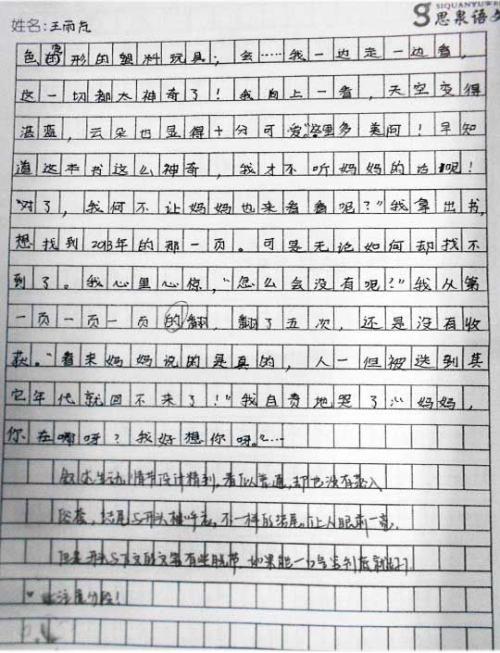 SIQUANYUWEN
思泉语文
姓名:王雨
色 形的塑料玩具;会……我一边走一边看,
这一切都太神奇了!我向上一看,天空变得
湛蓝,云朵也显得十分可爱,"这里多美阿!早知
道这本书这么神奇,我才不听妈妈的话呢!
"对了,我何不让妈妈也来看看呢?"我拿出书,
想找到2013年的那一页。可是无论如何却找不
到了。我心里心惊,"怎么会没有呢?"我从第
一页一页一页的翻,翻了五次,还是没有收
获。"看来妈妈说的是真的,人一但被送到其
它年代就回不来了!"我自责地哭了"妈妈,
你在哪呀?我好想你呀。"…
叙述生动,情节设计精到,看似普通,却也没有落入
俗套,结尾与开头相呼应,不一样的结尾,让人眼前一亮,
但是开头与下文的文笔有些脱节,如果能一 到底就好了
注意分段!